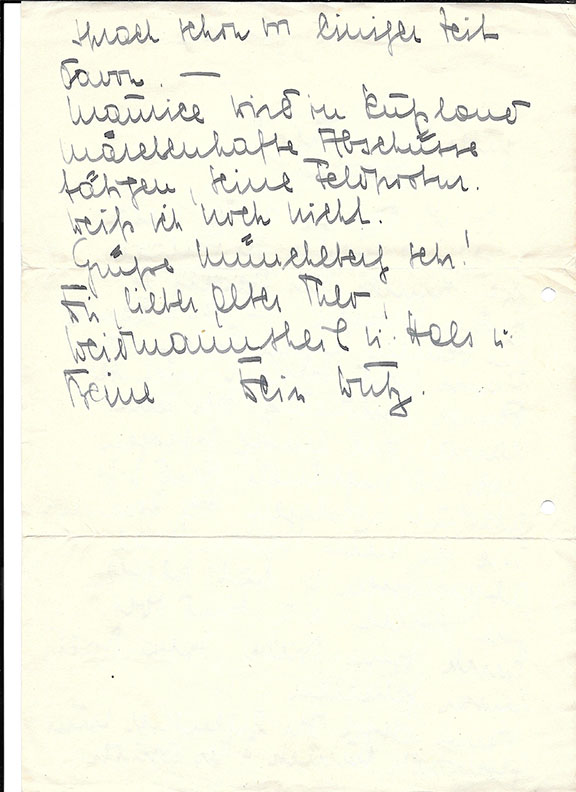 sprach schon vor einiger Zeit
davon. —
Maurice wird in Rußland
märchenhafte Abschüsse
tätigen, seine Feldpostnr.
weiß ich noch nicht.
Grüße Müncheberg sehr!
Dir, lieber alter Theo,
Weidmannsheil u. Hals u.
Beine Dein Wutz.